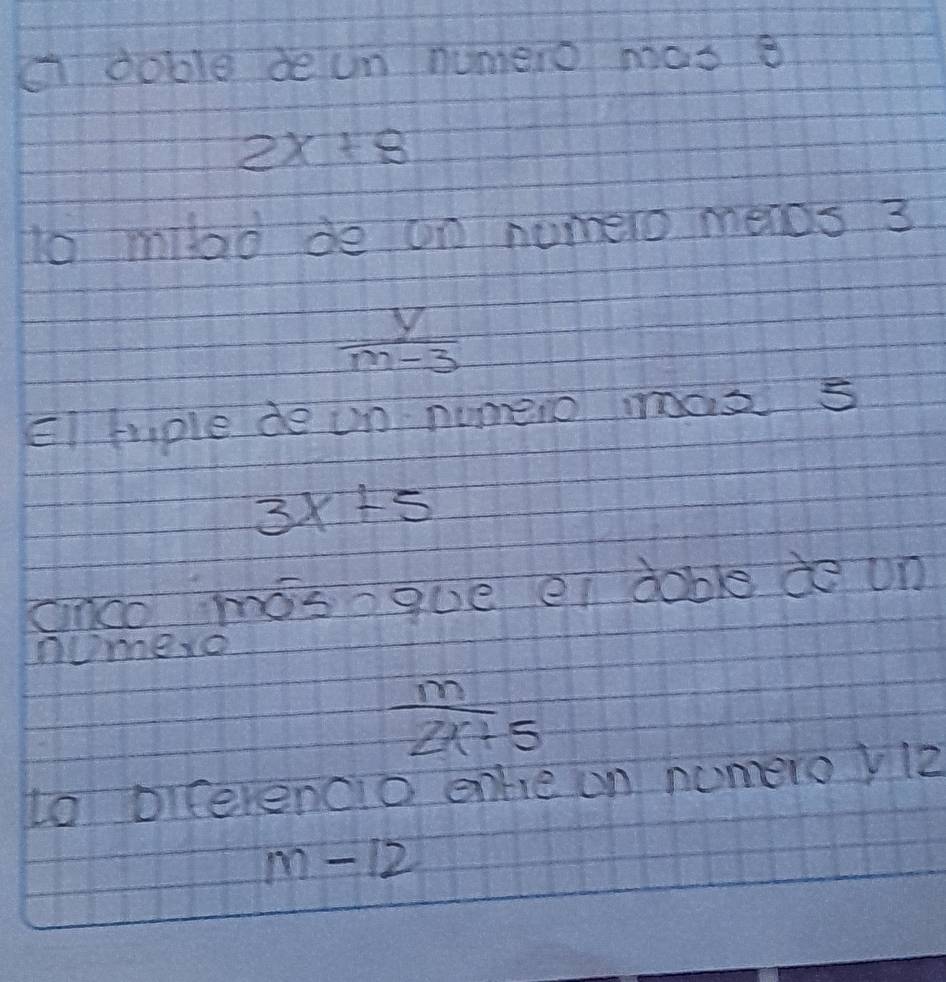 El doble de un numero mas 8
2x + 8
la mitad de un numero menos 3
y
m - 3
El triple de un numero mas 5
3x + 5
cinco más que el doble de un
numero
m
2x + 5
La Diferencia entre un numero y 12
m - 12